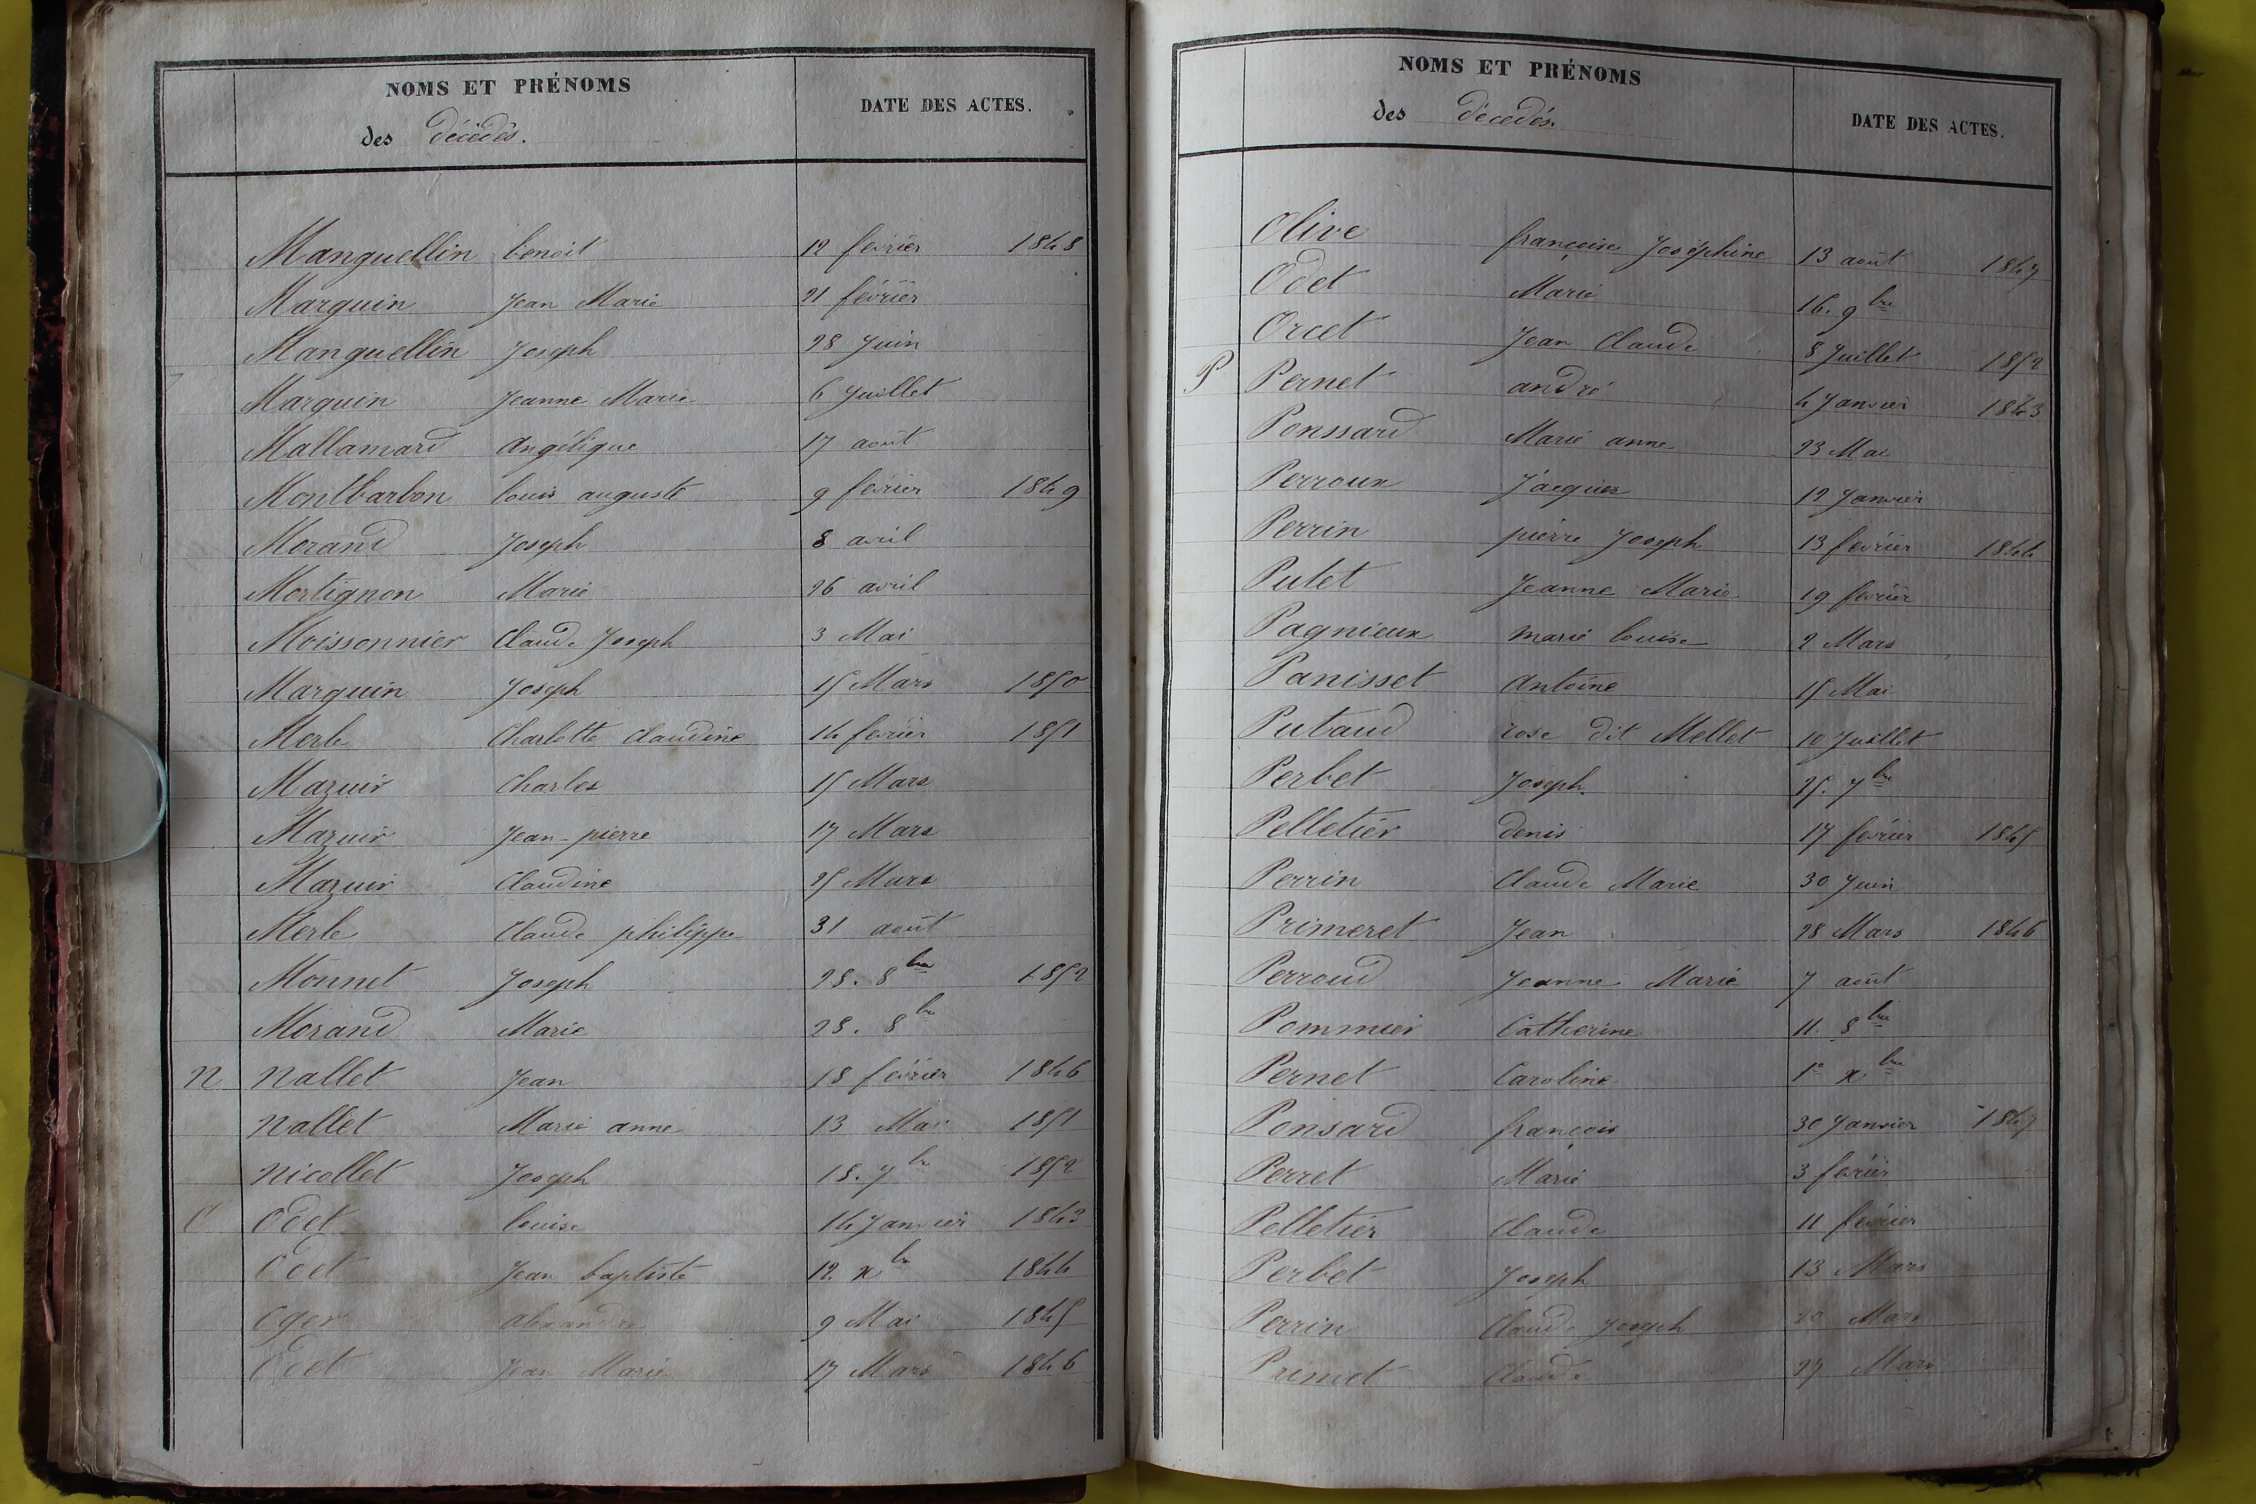 NOMS ET PRÉNOMS
des décédés.
DATE DES ACTES.
Manguellin benoit 12 février 1848
Marguin Jean Marie 21 février
Manguellin Joseph 28 Juin
Marguin Jeanne Marie 6 Juillet
Mallamard Angélique 17 août
Montbarbon louis auguste 9 février 1849
Morand Joseph 8 avril
Mortignon Marie 26 avril
Moissonnier Claude Joseph 3 Mai
Marguin Joseph 15 Mars 1850
Merle Charlotte Claudine 14 février 1851
Mazuir Charles 15 Mars
Mazuir Jean-pierre 17 Mars
Mazuir Claudine 25 Mars
Merle Claude philippe 31 août
Monnet Joseph 28. 8bre 1852
Morand Marie 28. 8bre
N Nallet Jean 18 février 1846
Nallet Marie anne 13 Mai 1851
Nicollet Joseph 18. 7bre 1852
O Odet louise 14 Janvier 1843
Odet Jean baptiste 12 xbre 1844
Oger alexandre 9 Mai 1845
Odet Jean Marie 17 Mars 1846
NOMS ET PRÉNOMS
des décédés.
DATE DES ACTES.
Olive françoise Joséphine 13 août 1847
Odet Marie 16. 9bre
Orcet Jean Claude 8 Juillet 1852
P Pernet andré 4 Janvier 1843
Ponssard Marie anne 23 Mai
Perroux Jacques 12 Janvier
Perrin pierre Joseph 13 février 1844
Putet Jeanne Marie 19 février
Pagnieux marie louise 2 Mars
Panisset Antoine 15 Mai
Putaud rose dit Mellet 10 Juillet
Perbet Joseph 25. 7bre
Pelletier denis 17 février 1845
Perrin Claude Marie 30 Juin
Primeret Jean 28 Mars 1846
Perroud Jeanne Marie 7 août
Pommier Catherine 11. 8bre
Pernet Caroline 1er xbre
Ponsard françois 30 Janvier 1847
Perret Marie 3 février
Pelletier Claude 11 février
Perbet Joseph 13 Mars
Perrin Claude Joseph 20 Mars
Primet Claude 27 Mars